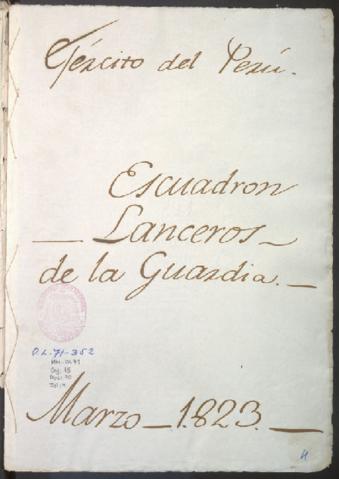 Ejército del Perú.
Escuadron
Lanceros
de la Guardia.
O.L. 71-352
Marzo 1.823.